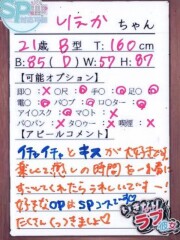 SP
りえか ちゃん
21歳 B型 T:160cm
B:85(D)W:57 H:87
【可能オプション】
即○:× ○尿:○ 手○:○ 足○:○
電○:× パ○ブ:○ ロ○ター:○
アイ○スク:○ マ○ト:×
パ○パン:× タ○ケー:× 喫煙:×
【アピールコメント】
イチャイチャとキスが大好きです
楽しい癒しの時間を一緒に
すごしてくれたらうれしいです〜!
好きなOPはSPコースです♡
たくさんくっつきましょ♡
ラブ